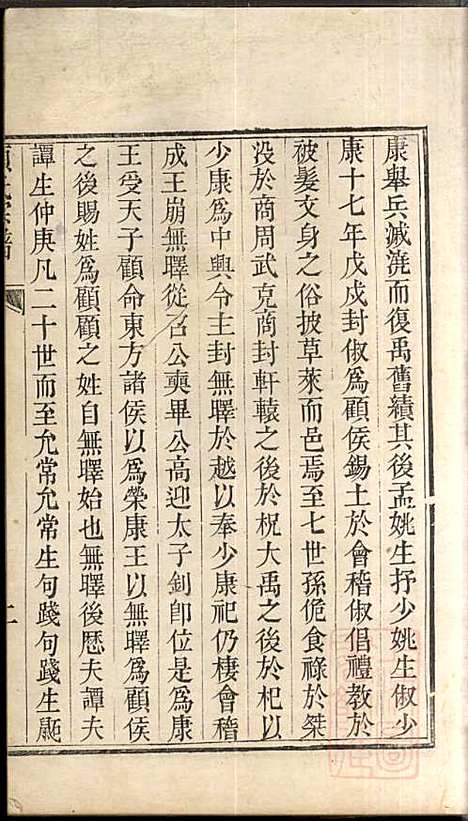 康舉兵滅澆而復禹舊績其後孟姚生抒少姚生俶少
康十七年戊戌封俶為顧侯錫土於會稽俶倡禮教於
被髮文身之俗披草萊而邑焉至七世孫佹食祿於桀
没於商周武克商封軒轅之後於柷大禹之後於杞以
少康為中興令主封無驛於越以奉少康祀仍棲會稽
成王崩無驛從召公奭畢公高迎太子釗卽位是為康
王受天子顧命東方諸侯以為榮康王以無驛為顧侯
之後賜姓為顧顧之姓自無驛始也無驛後歷夫譚夫
譚生仲庚凡二十世而至允常允常生句踐句踐生鼫
顧氏宗譜
二